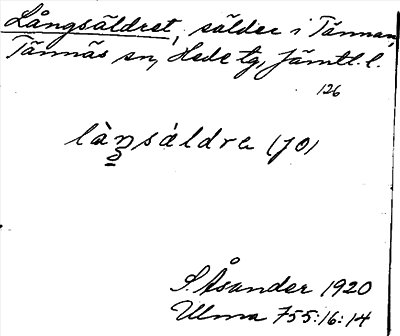 Långsäldret, sälder i Tännan,
Tännäs sn, Hede tg, Jämtl. l.
126
làn̥sàldra (JO)
S. Åsander 1920
Ulma 755:16:14